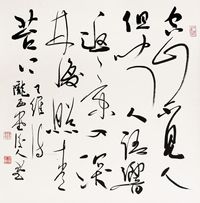 空山不見人
但聞人語響
返景入深
林復照青
苔上
王維詩